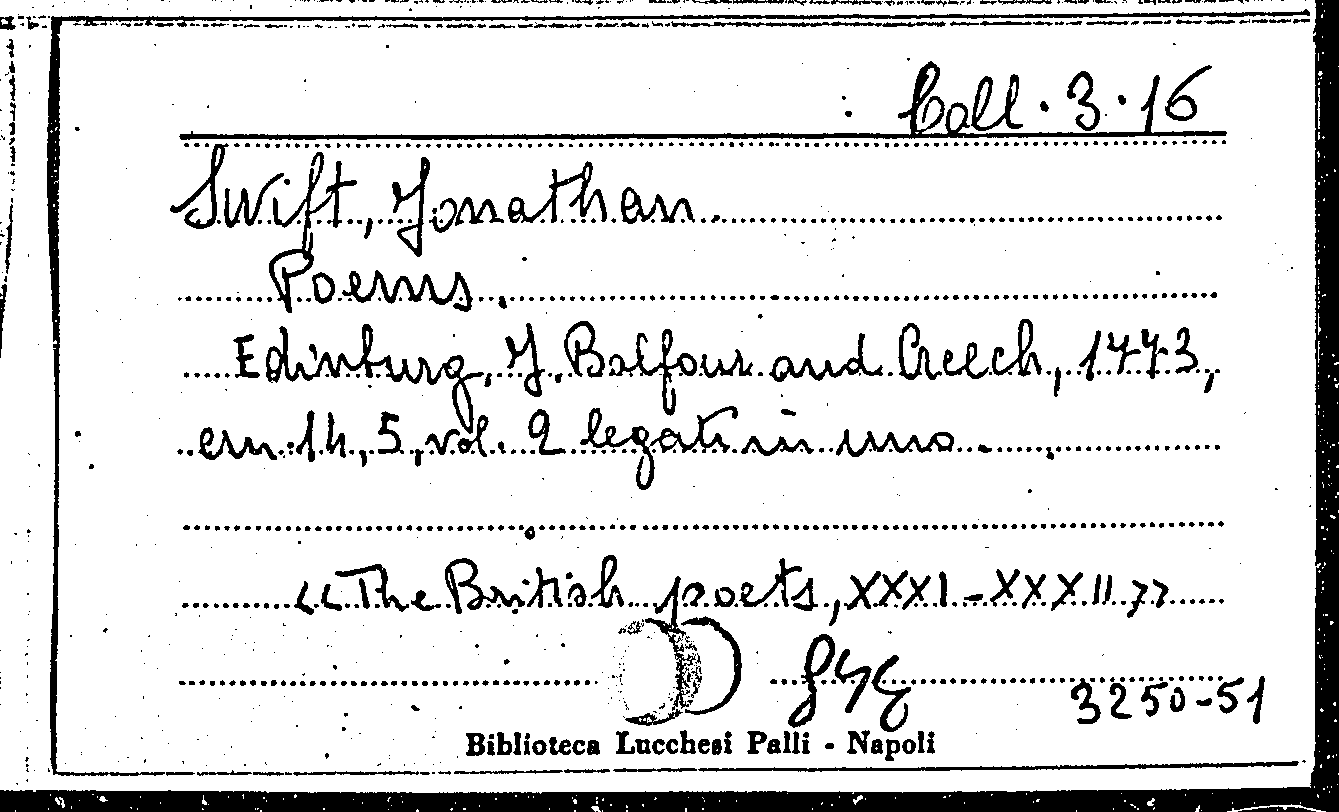 Coll. 3. 16
Swift, Jonathan.
Poems.
Edinburg, J. Balfour and Creech, 1773,
cm. 14,5, vol. 2 legati in uno.
<<The British poets, XXXI-XXXII>>
3250-51
Biblioteca Lucchesi Palli - Napoli